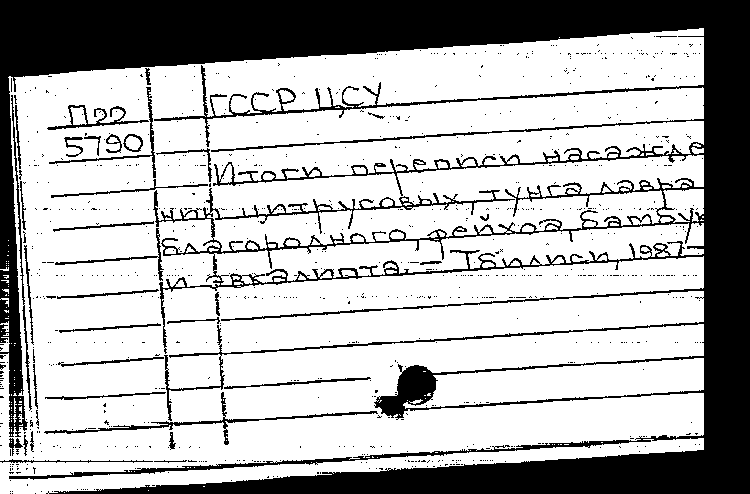 П22 ГССР ЦСУ
5790
Итоги переписи насажде
ний цитрусовых, тунга, лавра
благородного, фейхоа, бамбук
и эвкалипта. – Тбилиси, 1987–